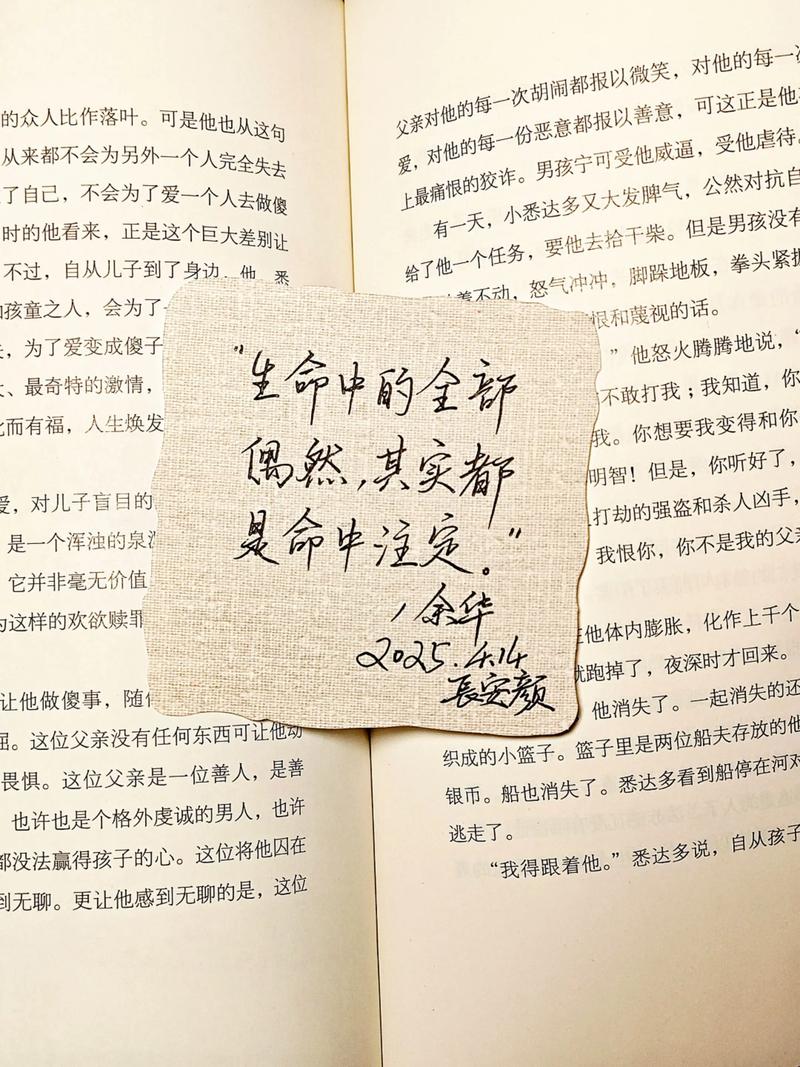 的众人比作落叶。可是他也从这句
从来都不会为另外一个人完全失去
了自己，不会为了爱一个人去做傻
时的他看来，正是这个巨大差别让
不过，自从儿子到了身边，他，悉
如孩童之人，会为了一
为了爱变成傻子
、最奇特的激情，
此而有福，人生焕发
爱，对儿子盲目的
是一个浑浊的泉
它并非毫无价值
为这样的欢欲赎罪
让他做傻事，随
屈。这位父亲没有任何东西可让他动
畏惧。这位父亲是一位善人，是善
也许也是个格外虔诚的男人，也许
都没法赢得孩子的心。这位将他囚在
到无聊。更让他感到无聊的是，这位
“生命中的全部
偶然，其实都
是命中注定。”
/余华
2025.4.14
長安颜
父亲对他的每一次胡闹都报以微笑，对他的每一
爱，对他的每一份恶意都报以善意，可这正是他
上最痛恨的狡诈。男孩宁可受他威逼，受他虐待。
有一天，小悉达多又大发脾气，公然对抗自
给了他一个任务，要他去拾干柴。但是男孩没有
着不动，怒气冲冲，脚跺地板，拳头紧握
恨和蔑视的话。
”他怒火腾腾地说，“
不敢打我；我知道，你
我。你想要我变得和你
明智！但是，你听好了，
打劫的强盗和杀人凶手，
我恨你，你不是我的父
在他体内膨胀，化作上千个
就跑掉了，夜深时才回来。
他消失了。一起消失的还
织成的小篮子。篮子里是两位船夫存放的
银币。船也消失了。悉达多看到船停在河对
逃走了。
“我得跟着他。”悉达多说，自从孩子